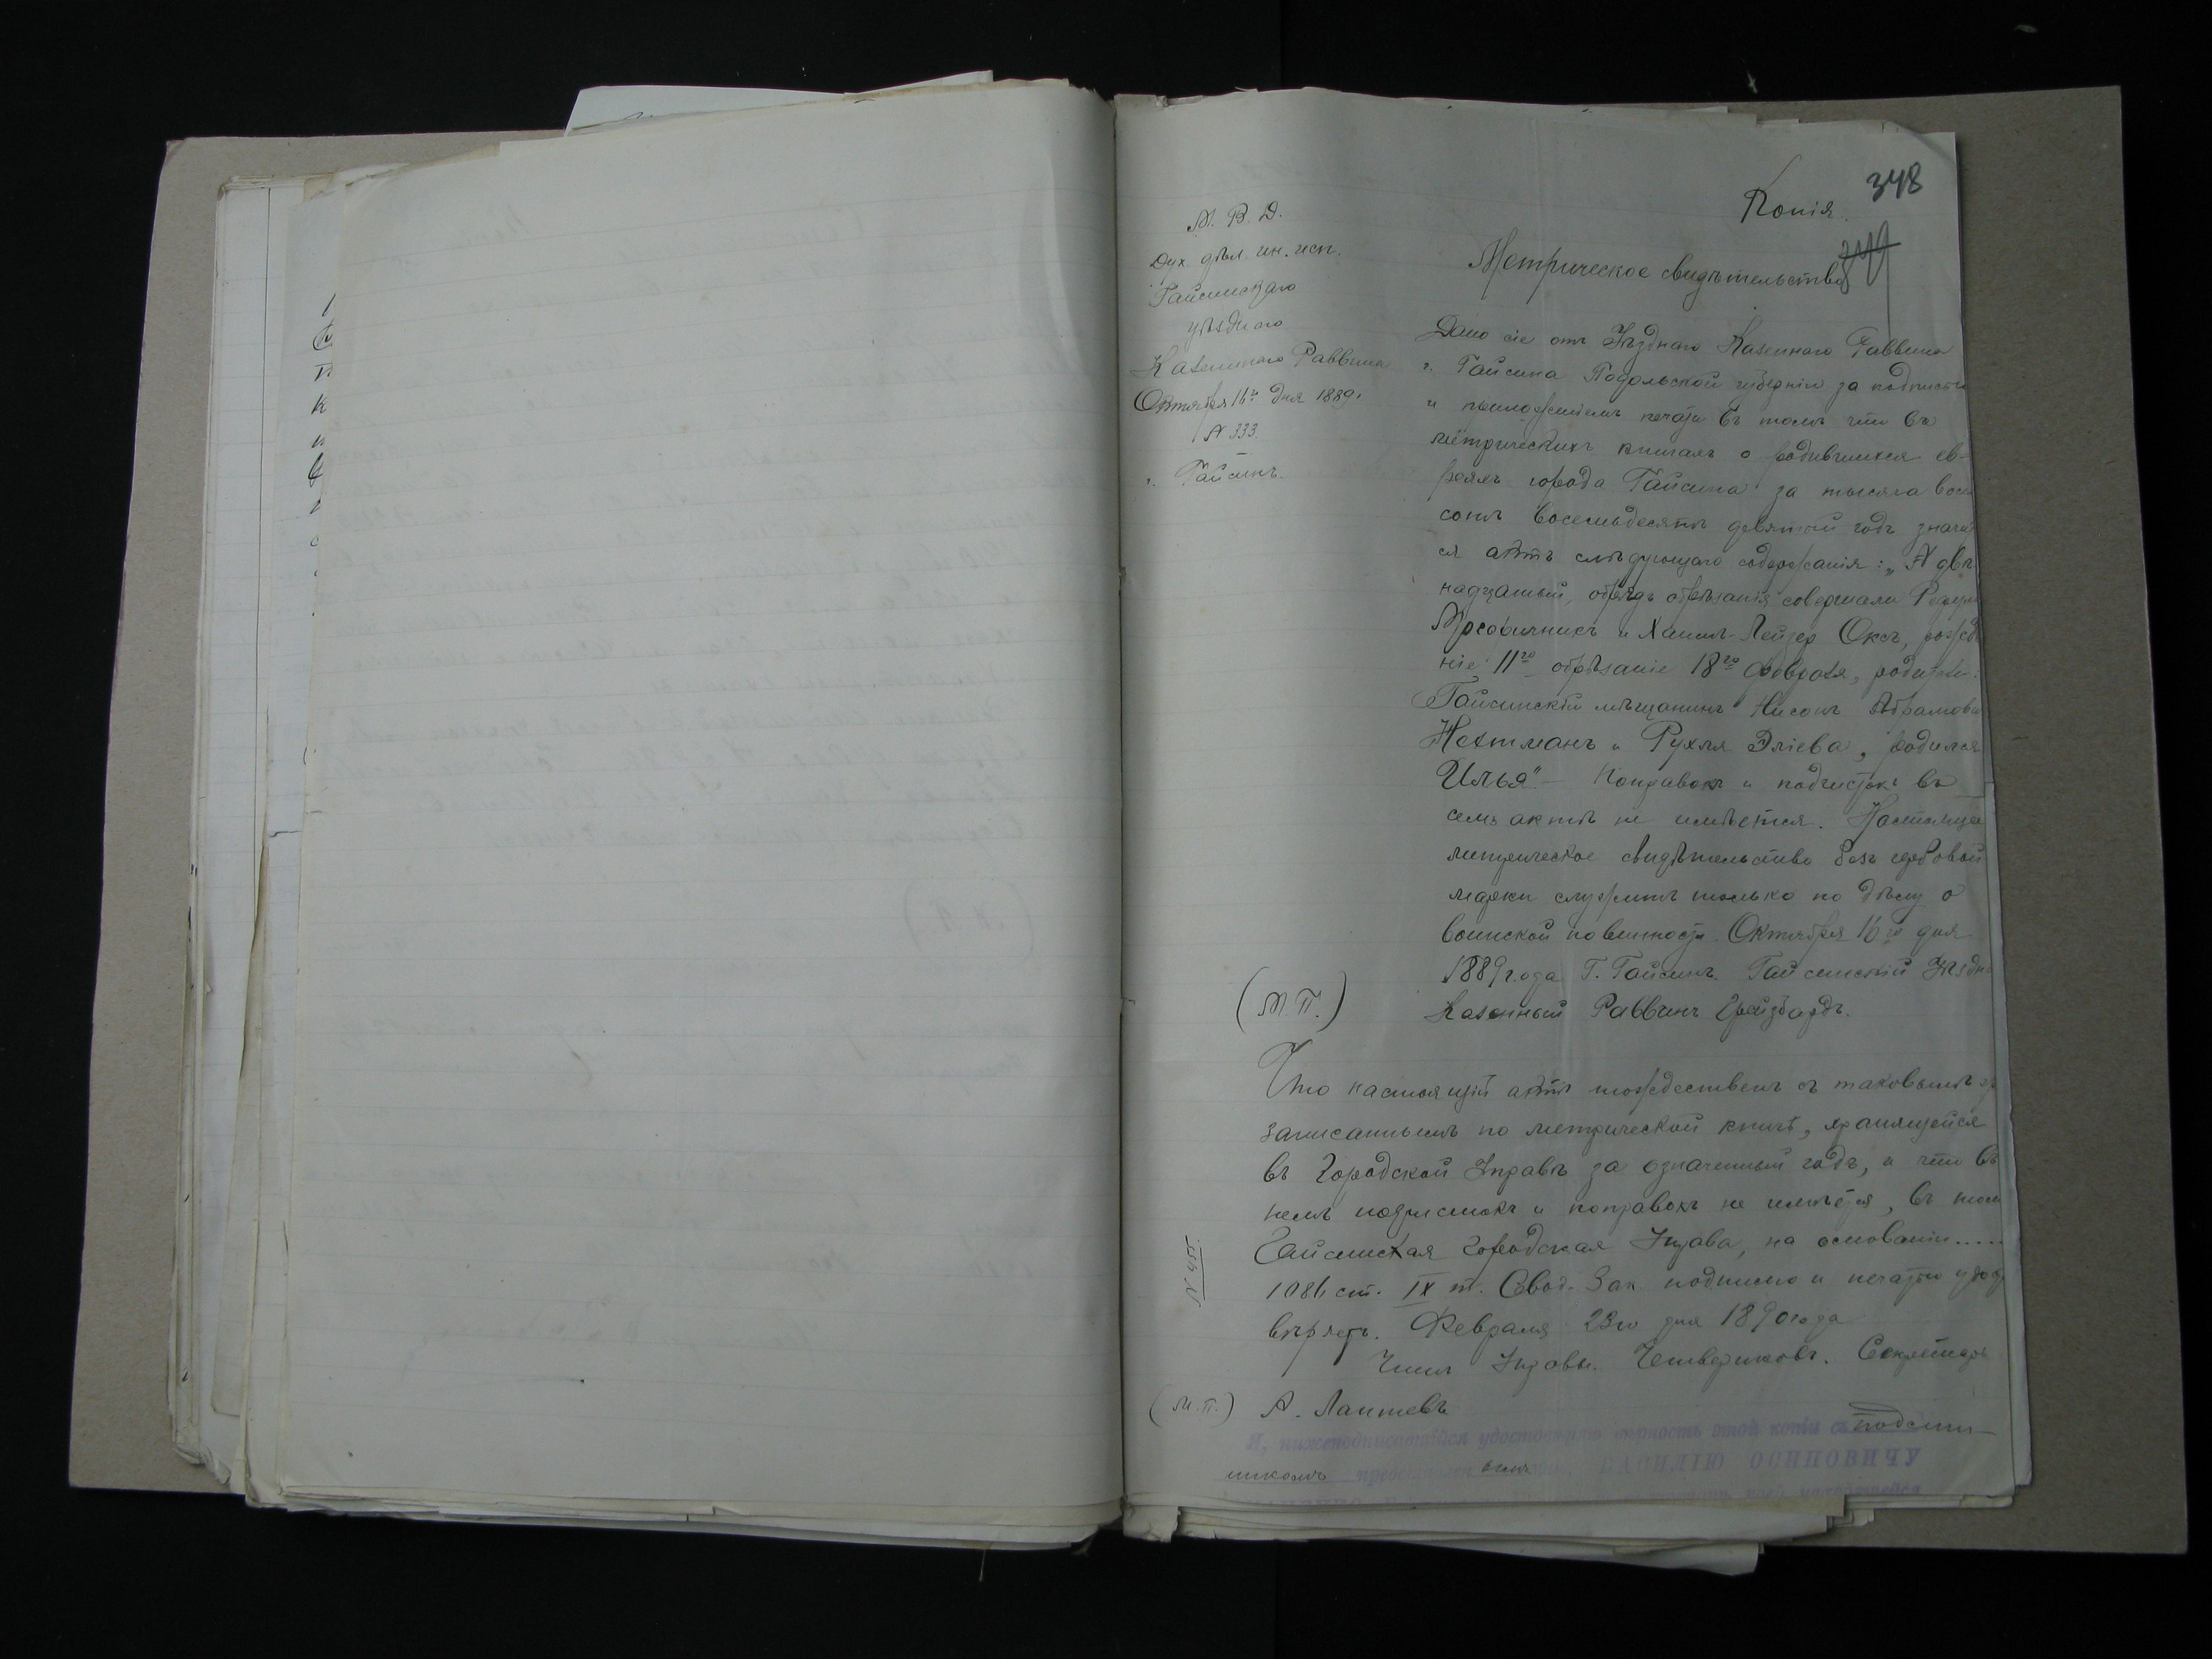 348
Копія.
349
М. В. Д.
Дух. дѣл. ин. исп.
Гайсинскаго
уѣзднаго
Казеннаго Раввина
Октября 16го дня 1889г.
N 333.
г. Гайсинъ.
Метрическое свидѣтельство
Дано сіе отъ Уѣзднаго Казеннаго Раввина
г. Гайсина Подольской губерніи за подписью
и приложеніемъ печати въ томъ что въ
метрическихъ книгахъ о родившихся ев-
реяхъ города Гайсина за тысяча восем
сотъ восемьдесятъ девятый годъ значит
ся актъ слѣдующаго содержанія: „N двѣ
надцатый, обрядъ обрѣзанія совершали
и Хаимъ-Лейзер Оксъ, рожде
ніе 11го обрѣзаніе 18го февраля, родители
Гайсинскій мѣщанинъ Нисонъ Абрамович
Нехтманъ и Рухля Эліева, родился
Илья" — Поправокъ и подчистокъ въ
семъ актѣ не имѣется. Настоящее
метрическое свидѣтельство безъ гербовой
марки служитъ только по дѣлу о
воинской повинности. Октября 16го дня
1889 года Г. Гайсинъ. Гайсинскій Уѣздн
(М. П.) Казенный Раввинъ Грейзбардъ.
Что настоящій актъ тождественъ съ таковымъ же
записаннымъ по метрической книгѣ, хранящейся
въ Городской Управѣ за означенный годъ, и что въ
немъ подчистокъ и поправокъ не имѣется, въ том
Гайсинская Городская Управа, на основаніи.....
N 455.
1086 ст. IX т. Свод. Зак. подписью и печатью удосто
вѣряетъ. Февраля 23го дня 1890 года
Членъ Управы Четвериковъ. Секретарь
(М. П.) А. Лаптевъ
Я, нижеподписавшійся удостовѣряю вѣрность этой копіи съ подлин-
никомъ ВАСИЛІЮ ОСИПОВИЧУ